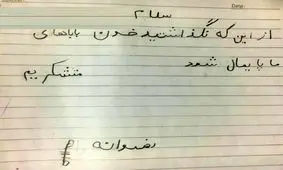 سلام
از این که نگذاشتید خون باباهای
ما پایمال شود
متشکریم
رضوانه